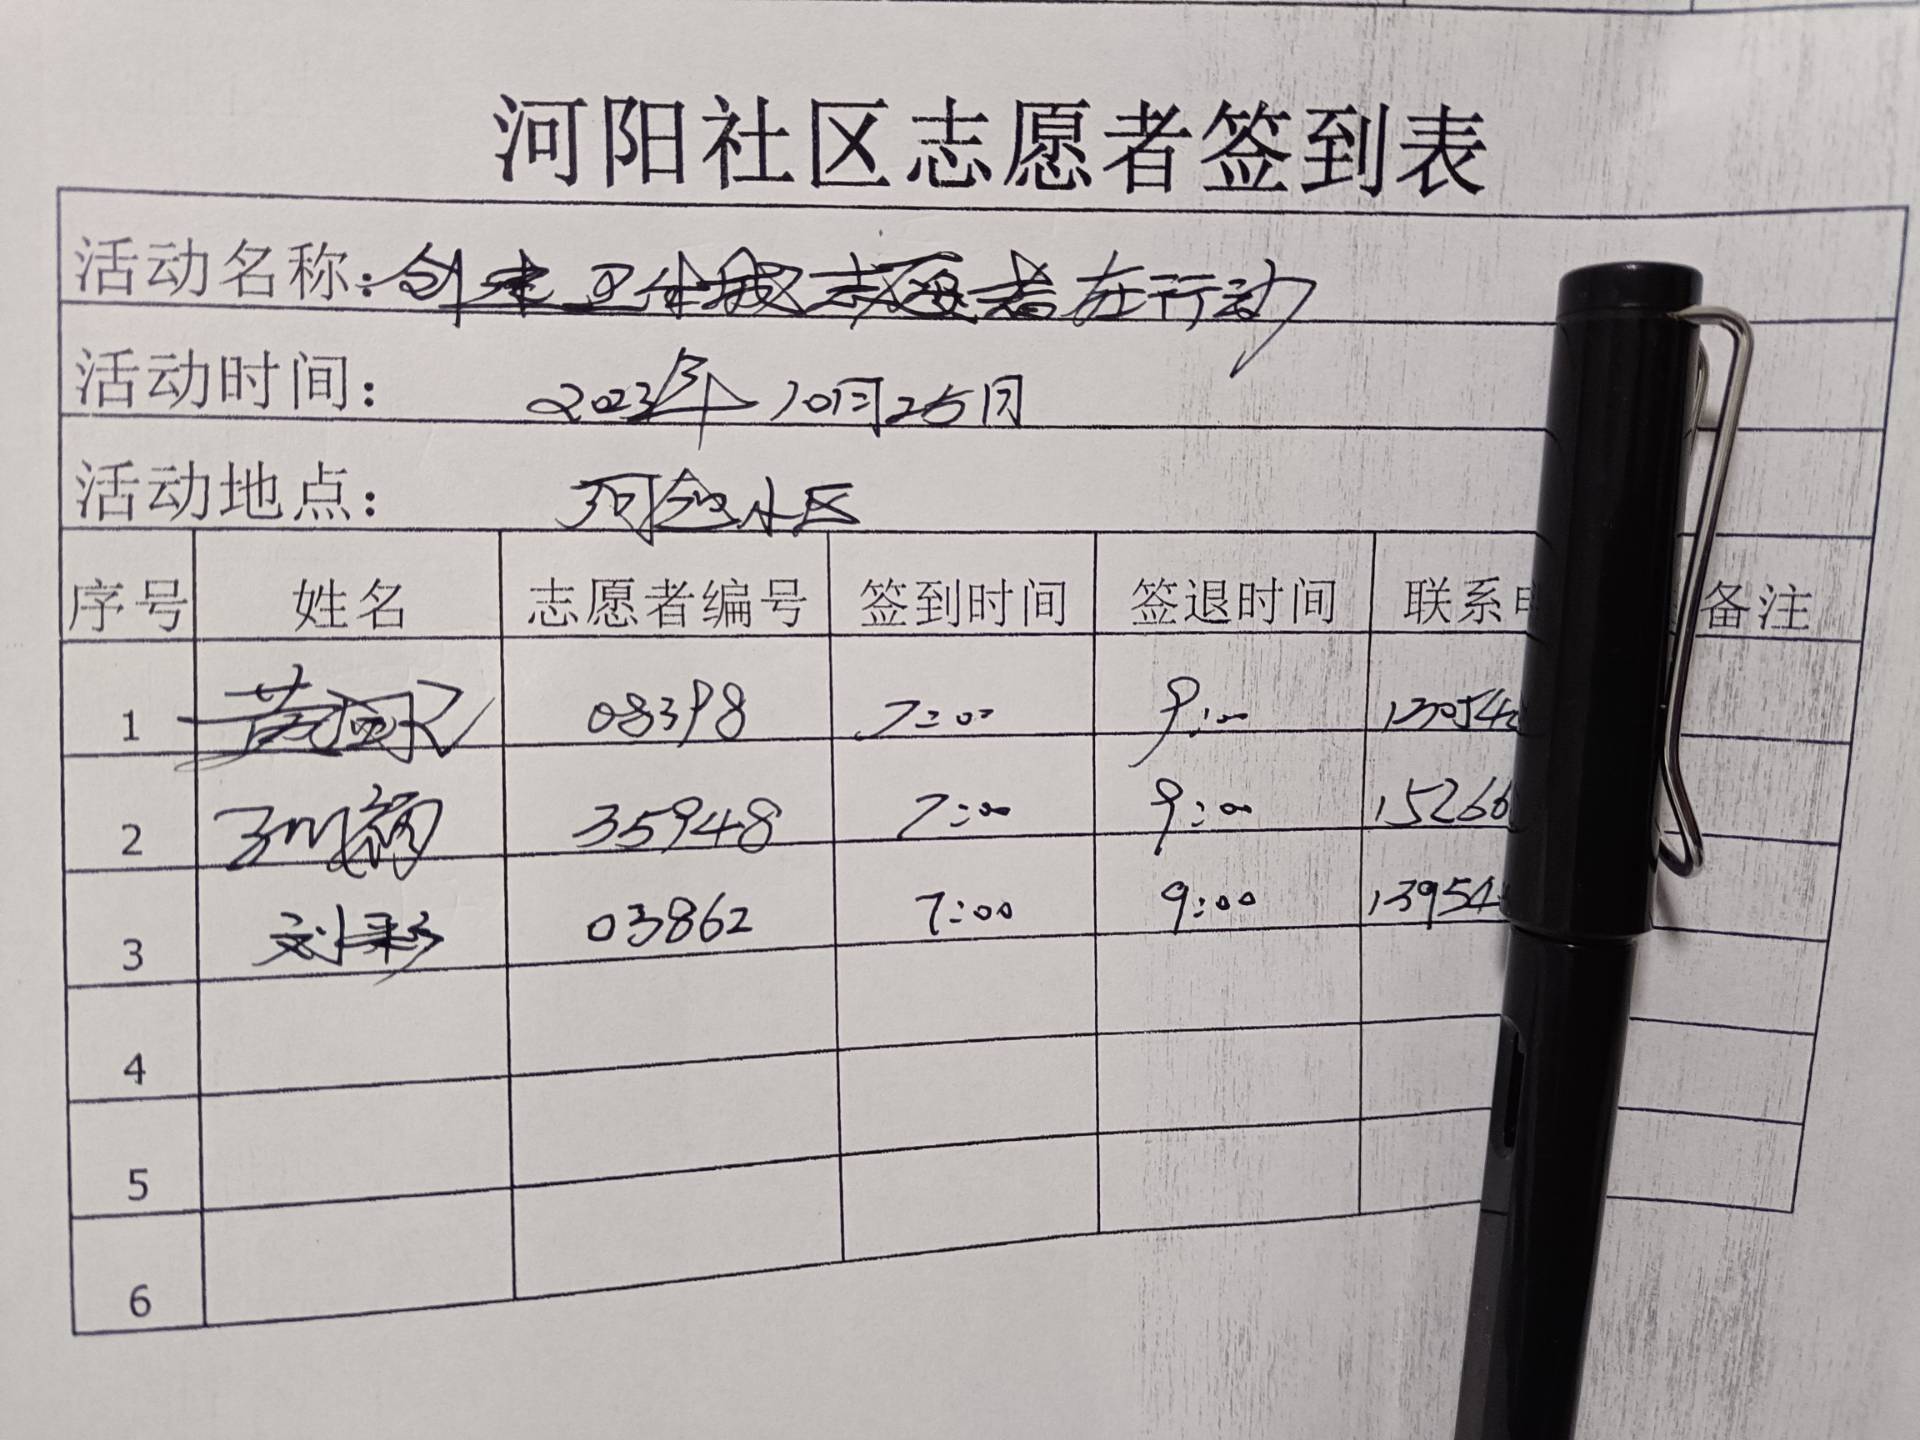 河阳社区志愿者签到表
活动名称：创建卫生城志愿者在行动
活动时间：2023年10月25日
活动地点：小区
序号 姓名 志愿者编号 签到时间 签退时间 联系 备注
1 08398 7:00 9:00 139054
2 35948 7:00 9:00 15266
3 刘彩 03862 7:00 9:00 13954
4
5
6